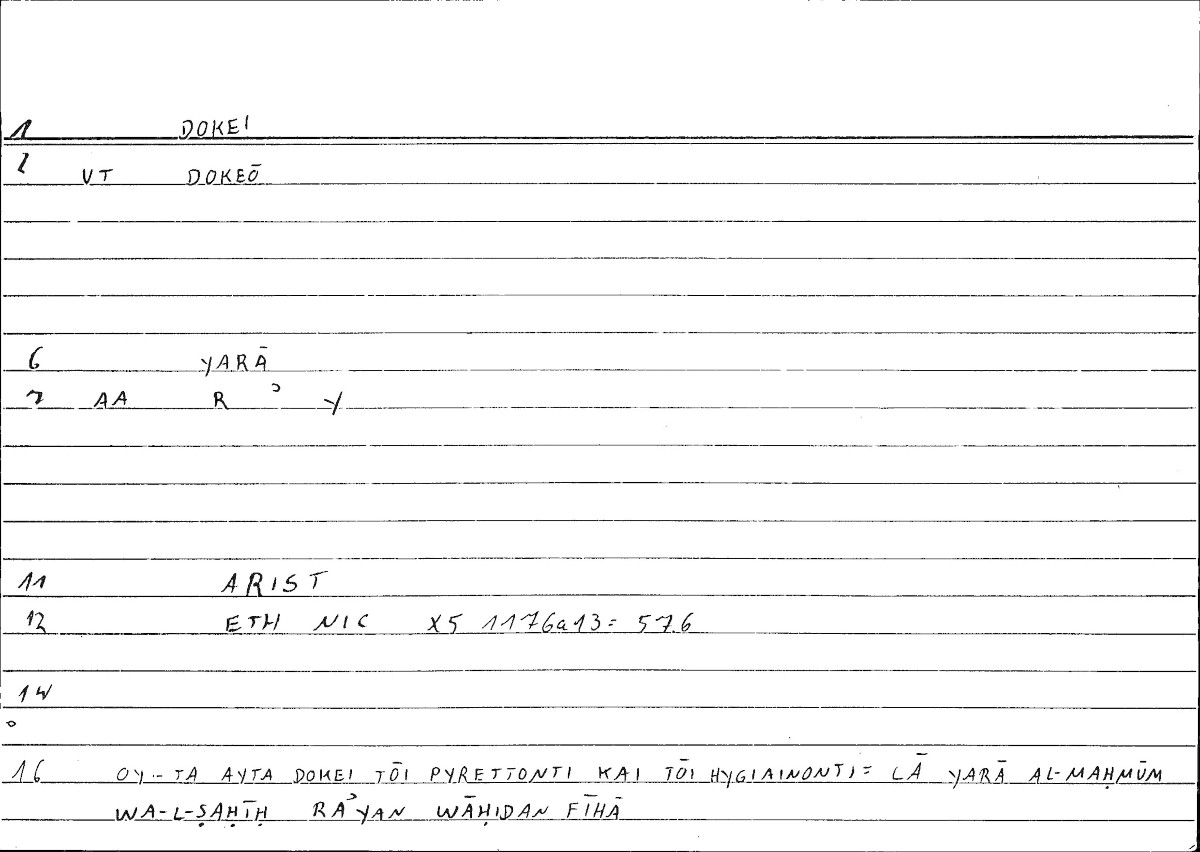 1 DOKEI
2 VT DOKEŌ
6 YARĀ
7 AA R ʾ Y
11 ARIST
12 ETH NIC X5 1176a13= 57.6
14
o
16 OY -- TA AYTA DOKEI TŌI PYRETTONTI KAI TŌI HYGIAINONTI= LĀ YARĀ AL-MAḤMŪM
WA-L-ṢAḤĪḤ RAʾYAN WĀḤIDAN FĪHĀ